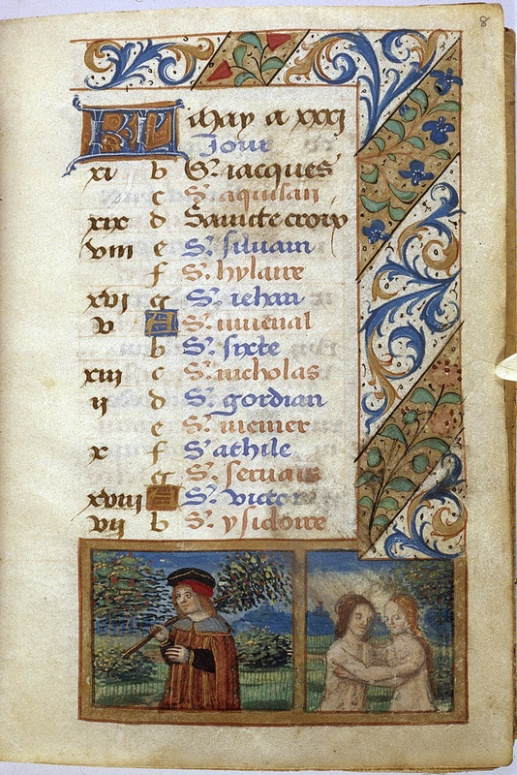 8
KL May a xxxi
Jour
xi b S. iacques
c S. aquisan
xix d Saincte croix
viii e S. siluain
f S. hylaire
xvi g S. iehan
v A S. iuuenal
b S. sixte
xiii c S. nicholas
ii d S. gordian
e S.
x f S. athile
g S. seruais
xviii A S. victor
vii b S. ysidoire